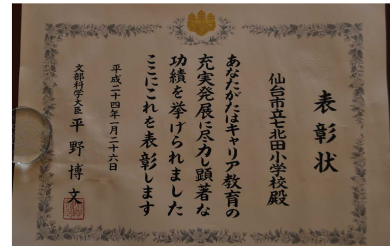 表彰状
仙台市立七北田小学校殿
あなたがたはキャリア教育の
充実発展に尽力し顕著な
功績を挙げられました
ここにこれを表彰します
平成二十四年一月二十六日
文部科学大臣 平野博文